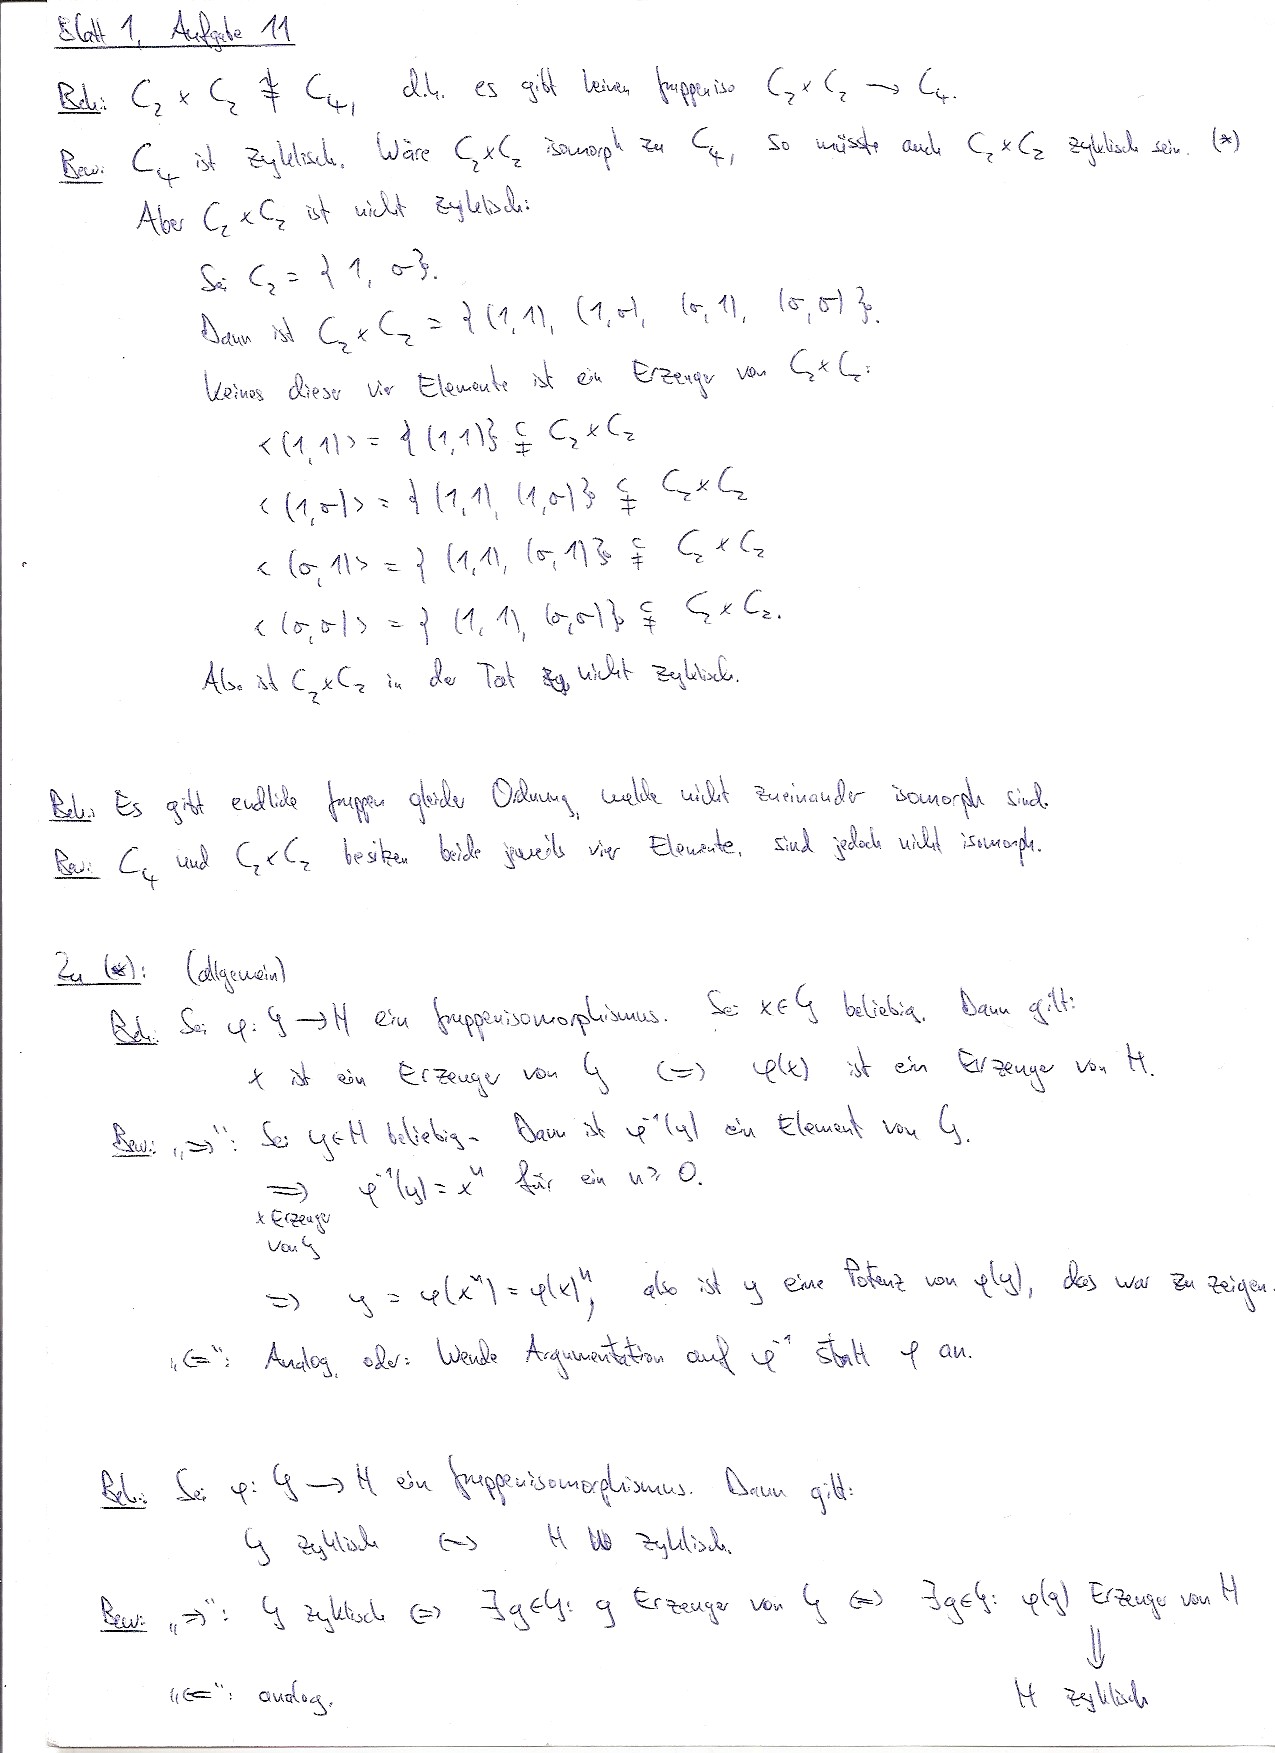 Blatt 1, Aufgabe 11
Beh.: C₂ × C₂ ≇ C₄, d.h. es gibt keinen Gruppeniso C₂ × C₂ → C₄.
Bew: C₄ ist zyklisch. Wäre C₂×C₂ isomorph zu C₄, so müsste auch C₂×C₂ zyklisch sein. (*)
Aber C₂×C₂ ist nicht zyklisch:
Sei C₂ = { 1, σ }.
Dann ist C₂×C₂ = { (1,1), (1,σ), (σ,1), (σ,σ) }.
Keines dieser vier Elemente ist ein Erzeuger von C₂×C₂:
<(1,1)> = { (1,1) } ⊊ C₂×C₂
<(1,σ)> = { (1,1), (1,σ) } ⊊ C₂×C₂
<(σ,1)> = { (1,1), (σ,1) } ⊊ C₂×C₂
<(σ,σ)> = { (1,1), (σ,σ) } ⊊ C₂×C₂.
Also ist C₂×C₂ in der Tat nicht zyklisch.
Beh.: Es gibt endliche Gruppen gleicher Ordnung, welche nicht zueinander isomorph sind.
Bew: C₄ und C₂×C₂ besitzen beide jeweils vier Elemente, sind jedoch nicht isomorph.
Zu (*): (allgemein)
Beh.: Sei φ: G → H ein Gruppenisomorphismus. Sei x∈G beliebig. Dann gilt:
x ist ein Erzeuger von G ⇔ φ(x) ist ein Erzeuger von H.
Bew: „⇒“: Sei y∈H beliebig. Dann ist φ⁻¹(y) ein Element von G.
⇒ φ⁻¹(y) = xⁿ für ein n ≥ 0.
x Erzeuger
von G
⇒ y = φ(xⁿ) = φ(x)ⁿ, also ist y eine Potenz von φ(y), das war zu zeigen.
„⇐“: Analog, oder: Wende Argumentation auf φ⁻¹ statt φ an.
Beh.: Sei φ: G → H ein Gruppenisomorphismus. Dann gilt:
G zyklisch ⇔ H zyklisch.
Bew: „⇒“: G zyklisch ⇔ ∃g∈G: g Erzeuger von G ⇔ ∃g∈G: φ(g) Erzeuger von H
⇓
„⇐“: analog. H zyklisch